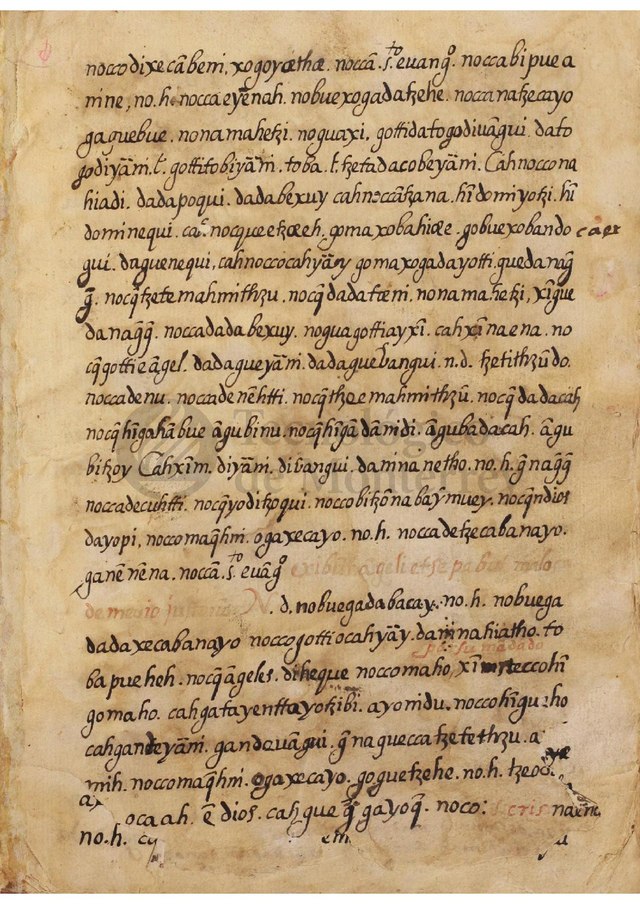 noccodixecãbemi, xogoyæthæ. noccã. s.to euang.o noccabipuea
mine, no. h. noccaeyẽnah. nobuexogadatzehe. noccanatzecayo
gaguebue. nonamahetzi. noguaxi, gottidatogodiuãgui. dato
godiyãm. t. gottitobiyãm. toba. t. tzetadacobeyãm. Cahnoccona
hiadi. dadapoqui. dadabexuy cahnoccãtzana. hĩ domiyotzi. hĩ
dominequi. ca. nocquetzæeh. gomaxobahiæe. gobuexobando caer
gui. daguenequi, cahnoccocahyãy gomaxogadayotti. guedanaq̃
q̃. nocq̃tzetemahmithzu. nocq̃dadatæm. nonamahetzi, xĩgue
danaq̃q̃. noccadadabexuy. noguagottiayxĩ. cahxĩnaena. no
cq̃gottieãgel. dadagueyãm. dadaguebangui. n.d. tzetithzũdo.
noccadenu. noccadenẽhtti. nocq̃tzaemahmithzũ. nocq̃dadacah
nocq̃hĩgahãbue ãgubinu. nocq̃hĩgãdãmdi. ãgubadacah. ãgu
bitzoy Cahxĩm. diyãm. dibangui. damnanetho. no. h. q̃naq̃q̃
noccadecuhtti. nocq̃yoditzoqui. noccobitzõnabaỹmuey. nocq̃ndios
dayopi, noccomaq̃hmi. ogaxecayo. no. h. noccadetzecabanayo.
ganẽnẽna. noccã. s.to euãg.o
N. d. nobuegadabacay. no. h. nobuega
dadaxecabanayo noccogottiocahyãy. damnahiatho. to
por su mãdado
bapueheh. nocq̃ãgeles. diheque noccomaho, xĩ teccohĩ
gomaho. cahgatayenttayotzibi. ayomdu. noccohĩguzho
cahgandeyãm. gandeuãgui. q̃nagueccatzetethzu. a
mih. noccomaq̃hmi. ogaxecayo. goguetzehe. no. h.
ocaah. ẽ dios. cahgue q̃ gayoq̃. noco:
no. h.